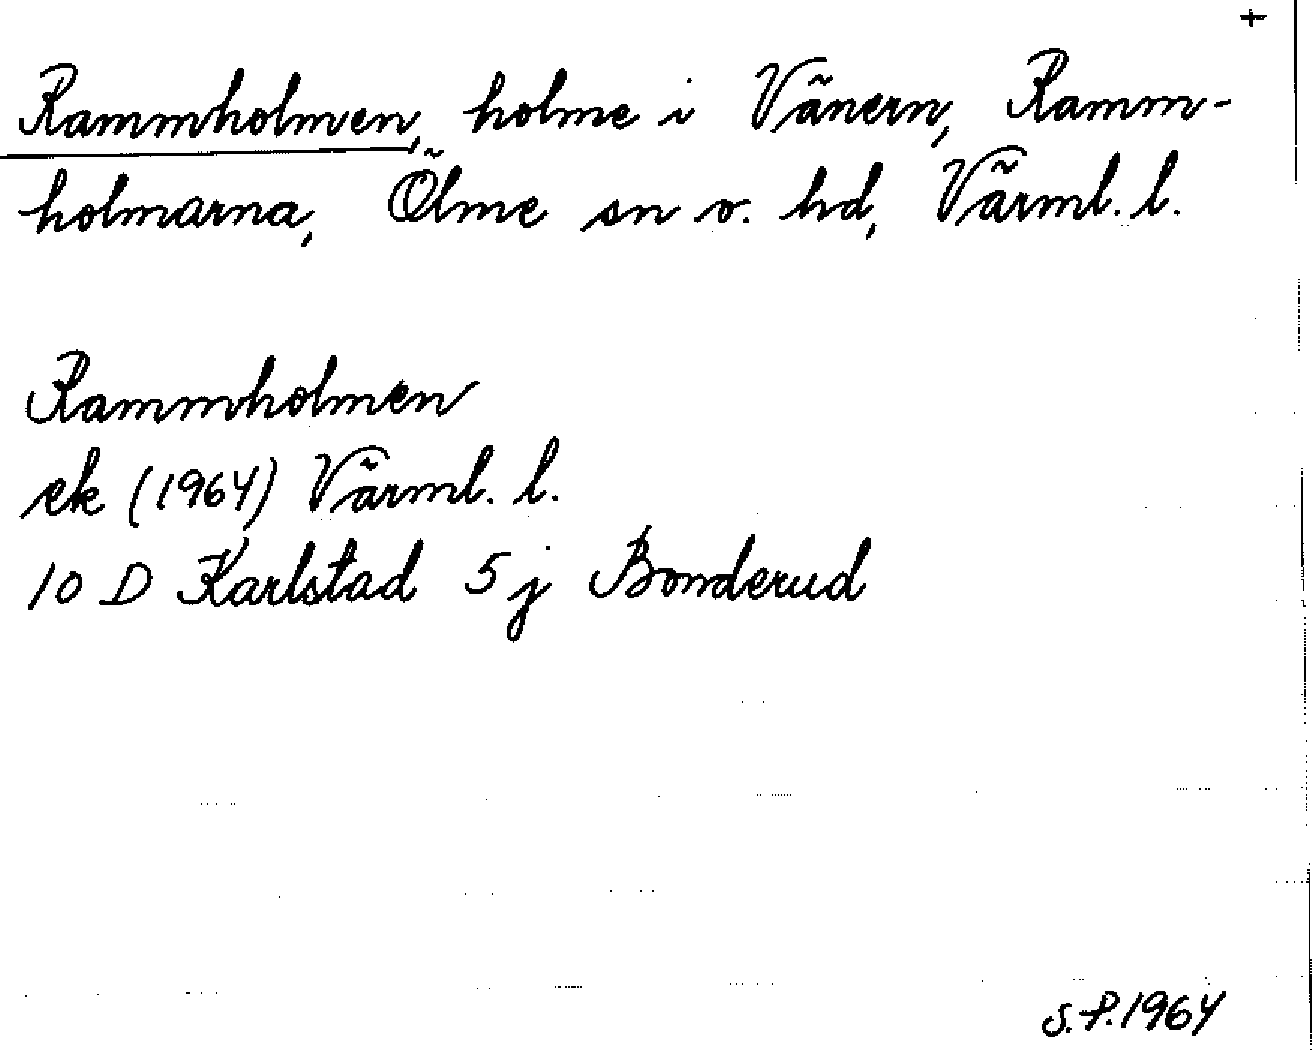 +
Rammholmen, holme i Vänern, Ramm-
holmarna, Ölme sn o. hd, Värml. l.
Rammholmen
ek (1964) Värml. l.
10 D Karlstad 5 j Bonderud
S.P.1964